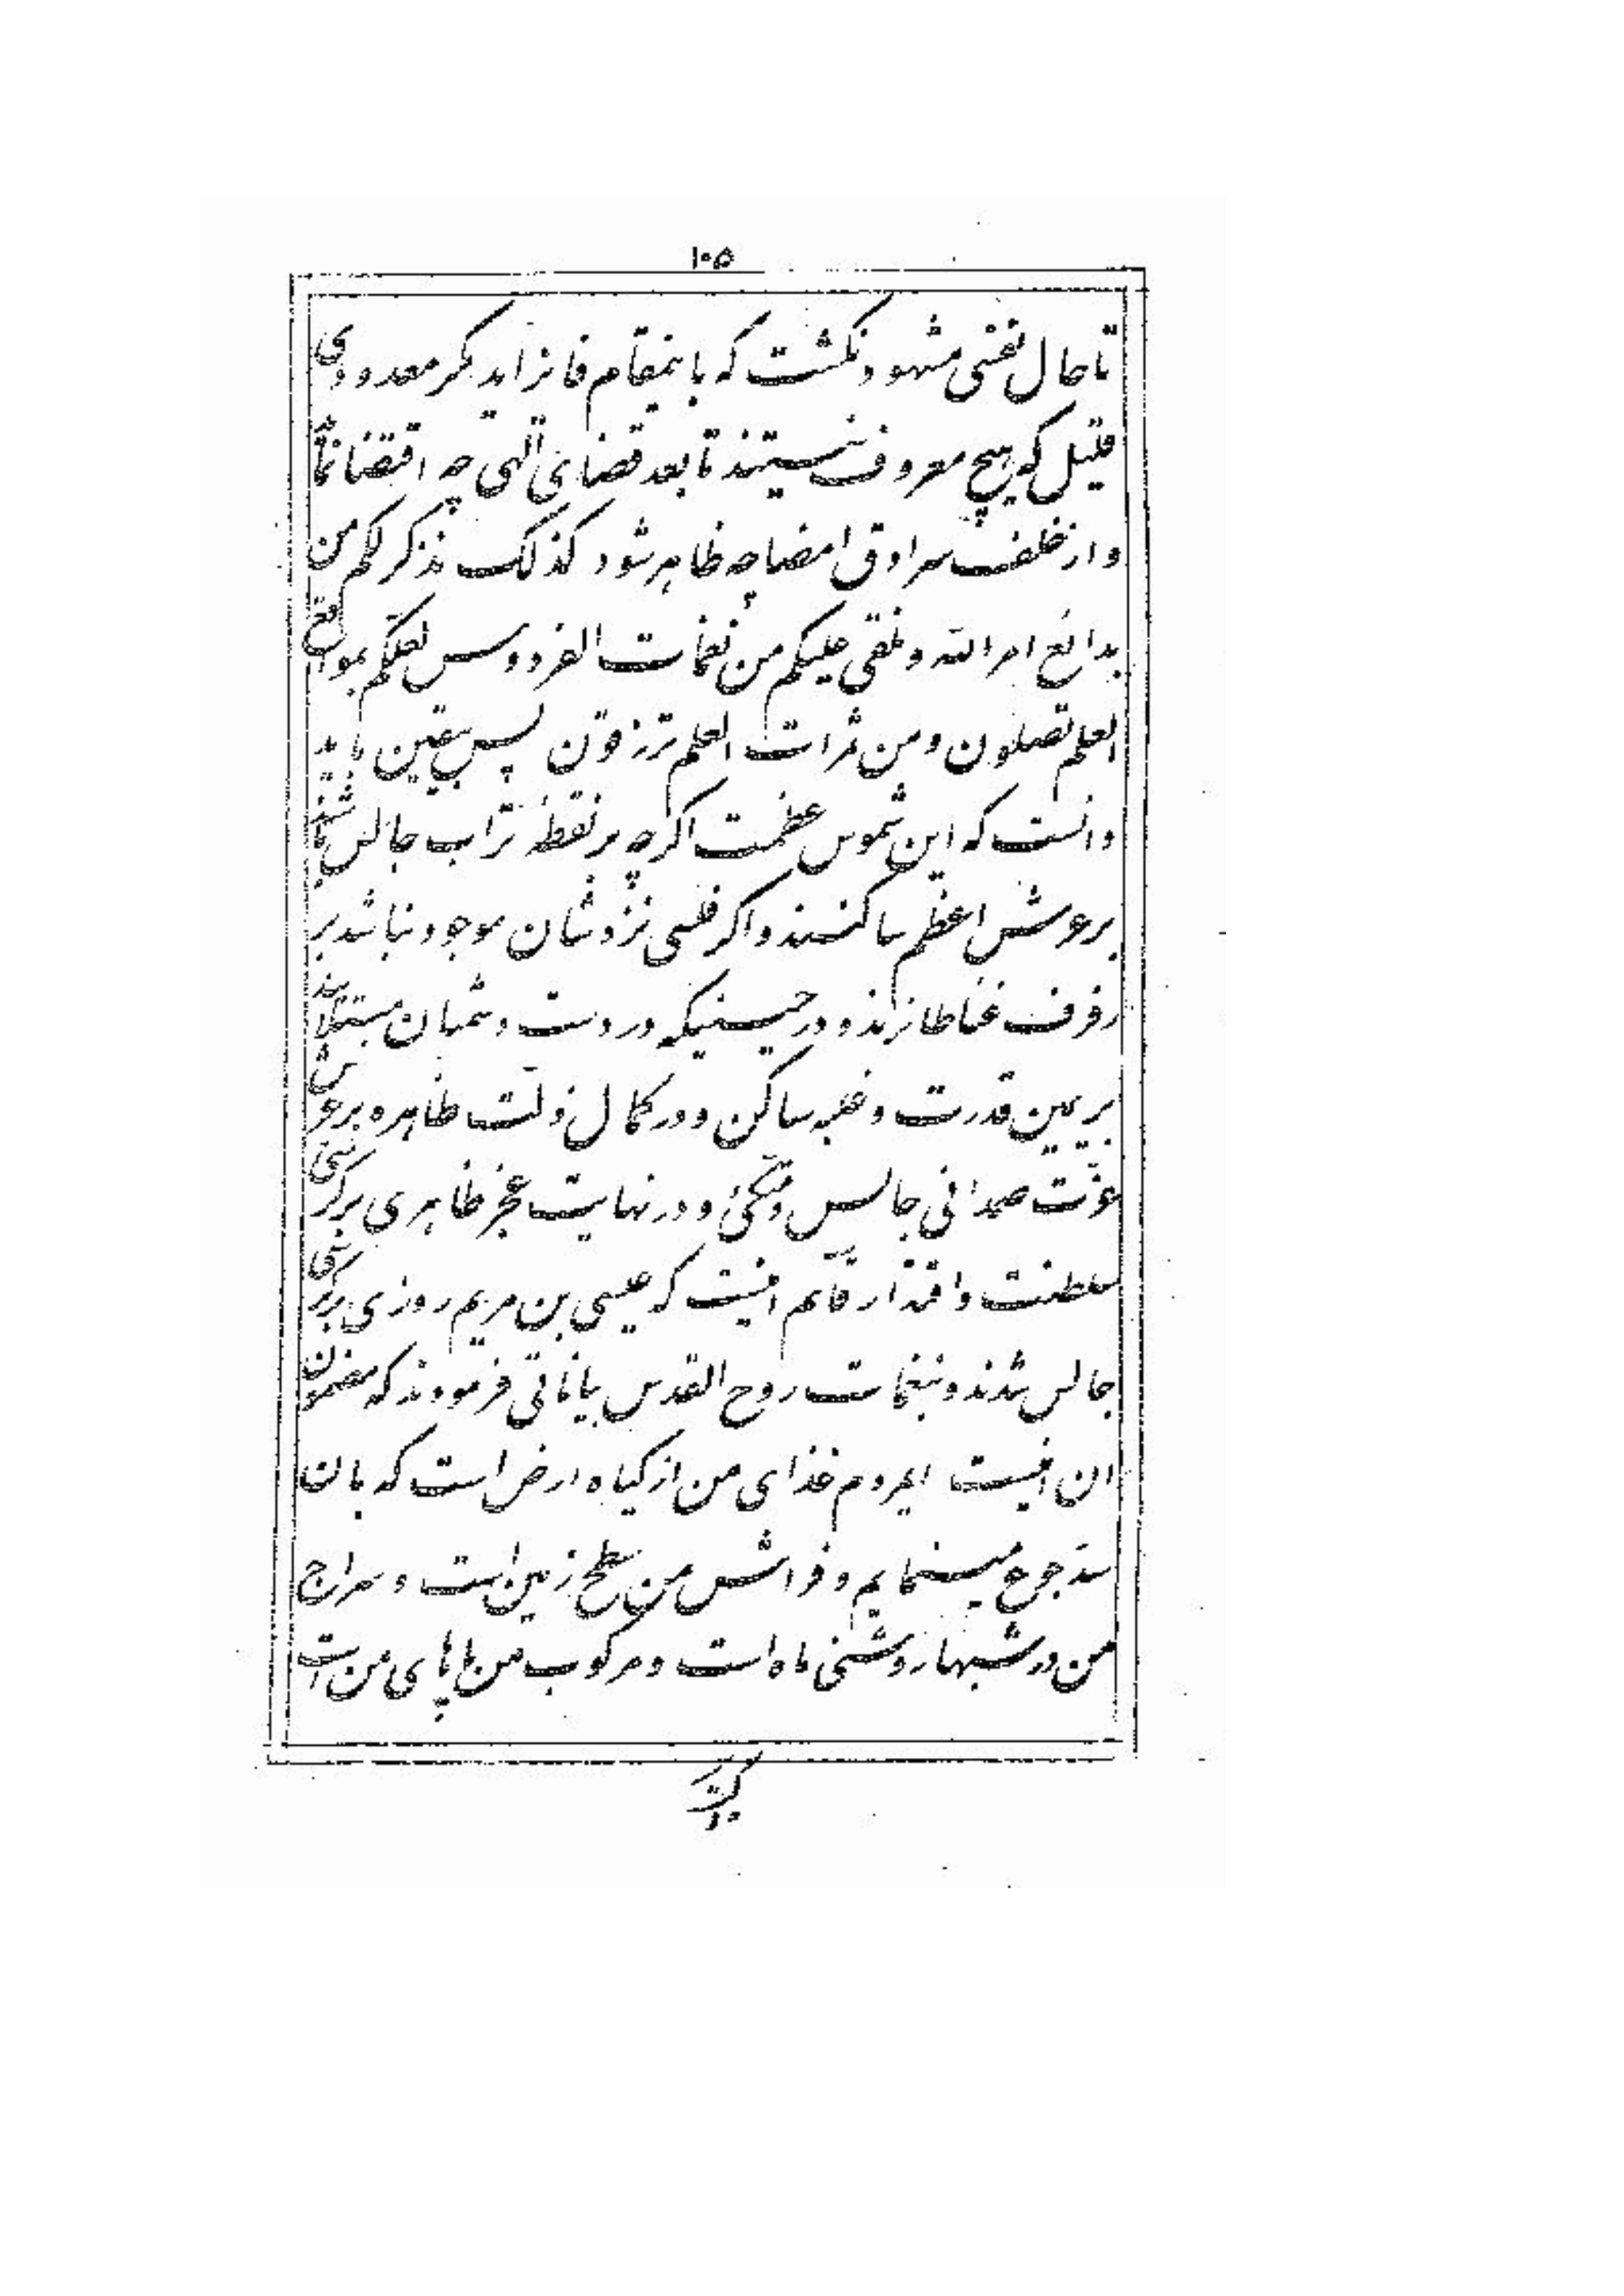 ۱۰۵
تا حال نفسی مشهود نگشت که باینمقام فائز اید مگر معدودی
قلیل که هیچ معروف نیستند تا بعد قضای الهی چه اقتضا نماید
و از خلف سرادق امضا چه ظاهر شود کذلک نذکر لکم من
بدائع امر الله و نلقی علیکم من نغمات الفردوس لعلکم بمواقع
العلم تصلون و من ثمرات العلم ترزقون پس یقین باید
دانست که این شموس عظمت اگرچه بر نقطه تراب جالس باشند
بر عرش اعظم ساکنند و اگر فلسی نزدشان موجود نباشد بر
رفرف غنا طائرند و در حینیکه در دست دشمنان مبتلایند
بر یمین قدرت و غلبه ساکن و در کمال ذلت ظاهره بر عرش
عزّت صمدانی جالس و متکئ و در نهایت عجز ظاهری بر کرسی
سلطنت و اقتدار قائم اینست که عیسی بن مریم روزی بر کرسی
جالس شدند و بنغمات روح القدس بیاناتی فرمودند که مضمون
ان اینست ایمردم غذای من از گیاه ارض است که بان
سدّ جوع مینمایم و فراش من سطح زمین است و سراج
من در شبها روشنی ماه است و مرکوب من پاهای من است
کیست